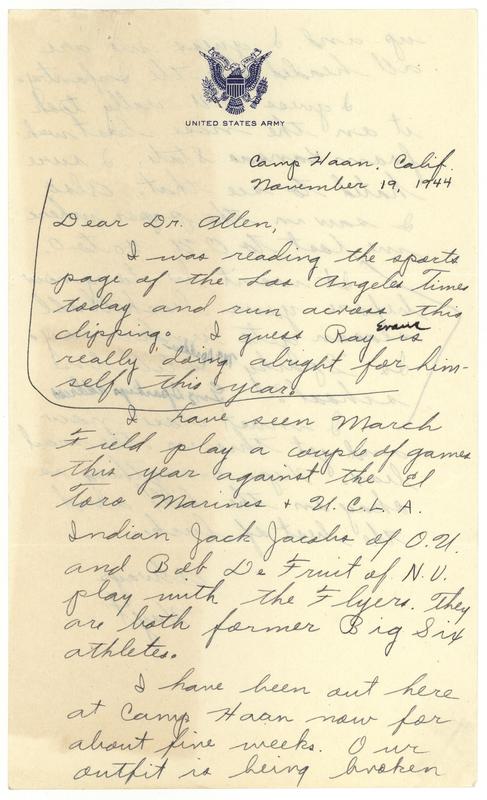 UNITED STATES ARMY
Camp Haan, Calif.
November 19, 1944
Dear Dr. Allen,
I was reading the sports
page of the Los Angeles Times
today and run across this
clipping. I guess Ray Evans is
really doing alright for him-
self this year.
I have seen March
Field play a couple of games
this year against the El
Toro Marines + U.C.L.A.
Indian Jack Jacobs of O.U.
and Bob De Fruit of N.U.
play with the Flyers. They
are both former Big Six
athletes.
I have been out here
at Camp Haan now for
about five weeks. Our
outfit is being broken